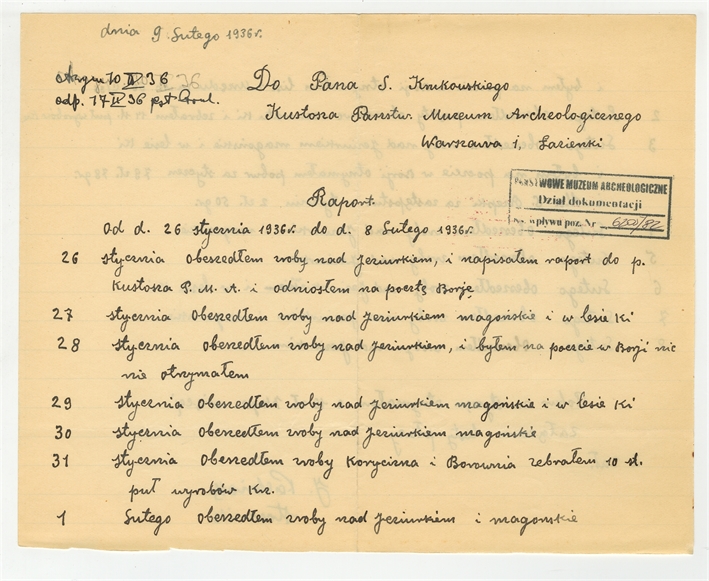 dnia 9 Lutego 1936 r.
10 II 36
odp. 17 II 36
Do Pana S. Krukowskiego
Kustosza Państw. Muzeum Archeologicznego
Warszawa 1, Łazienki
PAŃSTWOWE MUZEUM ARCHEOLOGICZNE
Dział dokumentacji
wpływu poz. Nr
Raport.
Od d. 26 stycznia 1936 r. do d. 8 Lutego 1936 r.
26 stycznia obeszedłem wroby nad Jeziurkiem, i napisałem raport do p.
Kustosza P. M. A. i odniosłem na pocztę Borję
27 stycznia obeszedłem wroby nad Jeziurkiem magońskie i w lesie Ki
28 stycznia obeszedłem wroby nad Jeziurkiem, i byłem na poczcie w Borji nic
nie otrzymałem
29 stycznia obeszedłem wroby nad Jeziurkiem magońskie i w lesie Ki
30 stycznia obeszedłem wroby nad Jeziurkiem magońskie
31 stycznia obeszedłem wroby Korycizna i Borownia zebrałem 10 st.
puł wyrobów Krz.
1 Lutego obeszedłem wroby nad Jeziurkiem i magonskie